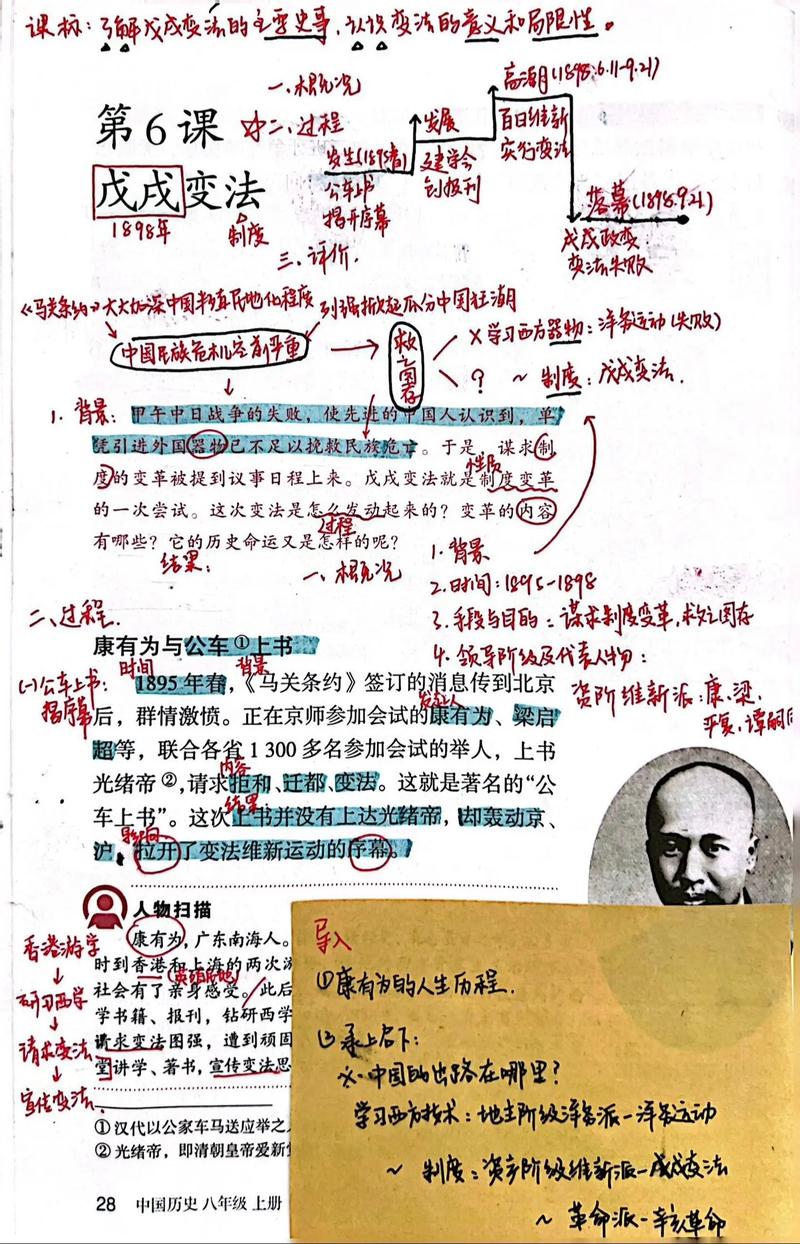 课标：了解戊戌变法的主要史事，认识变法的意义和局限性。
一、概况
第 6 课
戊戌变法
1898年
制度
☆二、过程
发生(1895春)
公车上书
揭开序幕
发展
建学会
创报刊
高潮(1898.6.11-9.21)
百日维新
实行变法
落幕(1898.9.21)
戊戌政变
变法失败
三、评价
《马关条约》大大加深中国半殖民地化程度
列强掀起瓜分中国狂潮
中国民族危机空前严重
救亡图存
×学习西方器物：洋务运动(失败)
? ~ 制度：戊戌变法.
1. 背景：
甲午中日战争的失败，使先进的中国人认识到，单
凭引进外国器物已不足以挽救民族危亡。于是，谋求制
度的变革被提到议事日程上来。戊戌变法就是制度变革
性质
的一次尝试。这次变法是怎么发动起来的？变革的内容
过程
有哪些？它的历史命运又是怎样的呢？
结果：
一、概况
1. 背景
2. 时间：1895-1898
3. 手段与目的：谋求制度变革，救亡图存
4. 领导阶级及代表人物：
资阶维新派：康、梁、
严复、谭嗣同
二、过程.
康有为与公车①上书
(一)公车上书：
揭序幕
时间
背景
1895 年春，《马关条约》签订的消息传到北京
后，群情激愤。正在京师参加会试的康有为、梁启
发动人
超等，联合各省 1 300 多名参加会试的举人，上书
内容
光绪帝②，请求拒和、迁都、变法。这就是著名的“公
结果：
车上书”。这次上书并没有上达光绪帝，却轰动京、
影响
沪，拉开了变法维新运动的序幕。
人物扫描
康有为，广东南海人。
时到香港和上海的两次游
(英殖民地)
社会有了亲身感受。此后
学书籍、报刊，钻研西学
请求变法图强，遭到顽固
堂讲学、著书，宣传变法思
香港游学
↓
研习西学
↓
请求变法
↓
宣传变法.
① 汉代以公家车马送应举之人
② 光绪帝，即清朝皇帝爱新觉
28 中国历史 八年级 上册
导入
①康有为的人生历程.
②承上启下：
※中国的出路在哪里？
学习西方技术：地主阶级洋务派-洋务运动
~ 制度：资产阶级维新派-戊戌变法
~ 革命派-辛亥革命